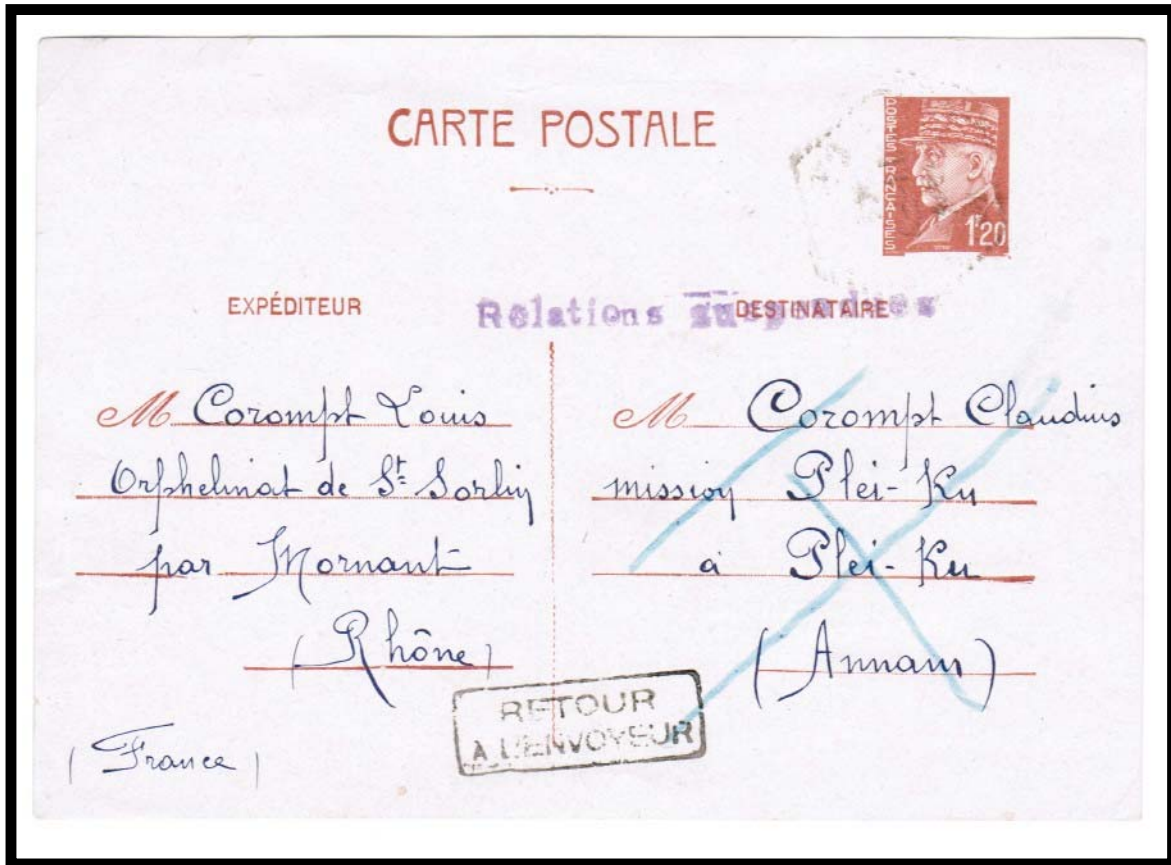 CARTE POSTALE
POSTES FRANÇAISES
1F20
EXPÉDITEUR
DESTINATAIRE
Relations suspendues
M Corompt Louis
Orphelinat de St Sorlin
par Mornant
(Rhône)
(France)
M Corompt Claudius
mission Plei-Ku
à Plei-Ku
(Annam)
RETOUR
A L'ENVOYEUR